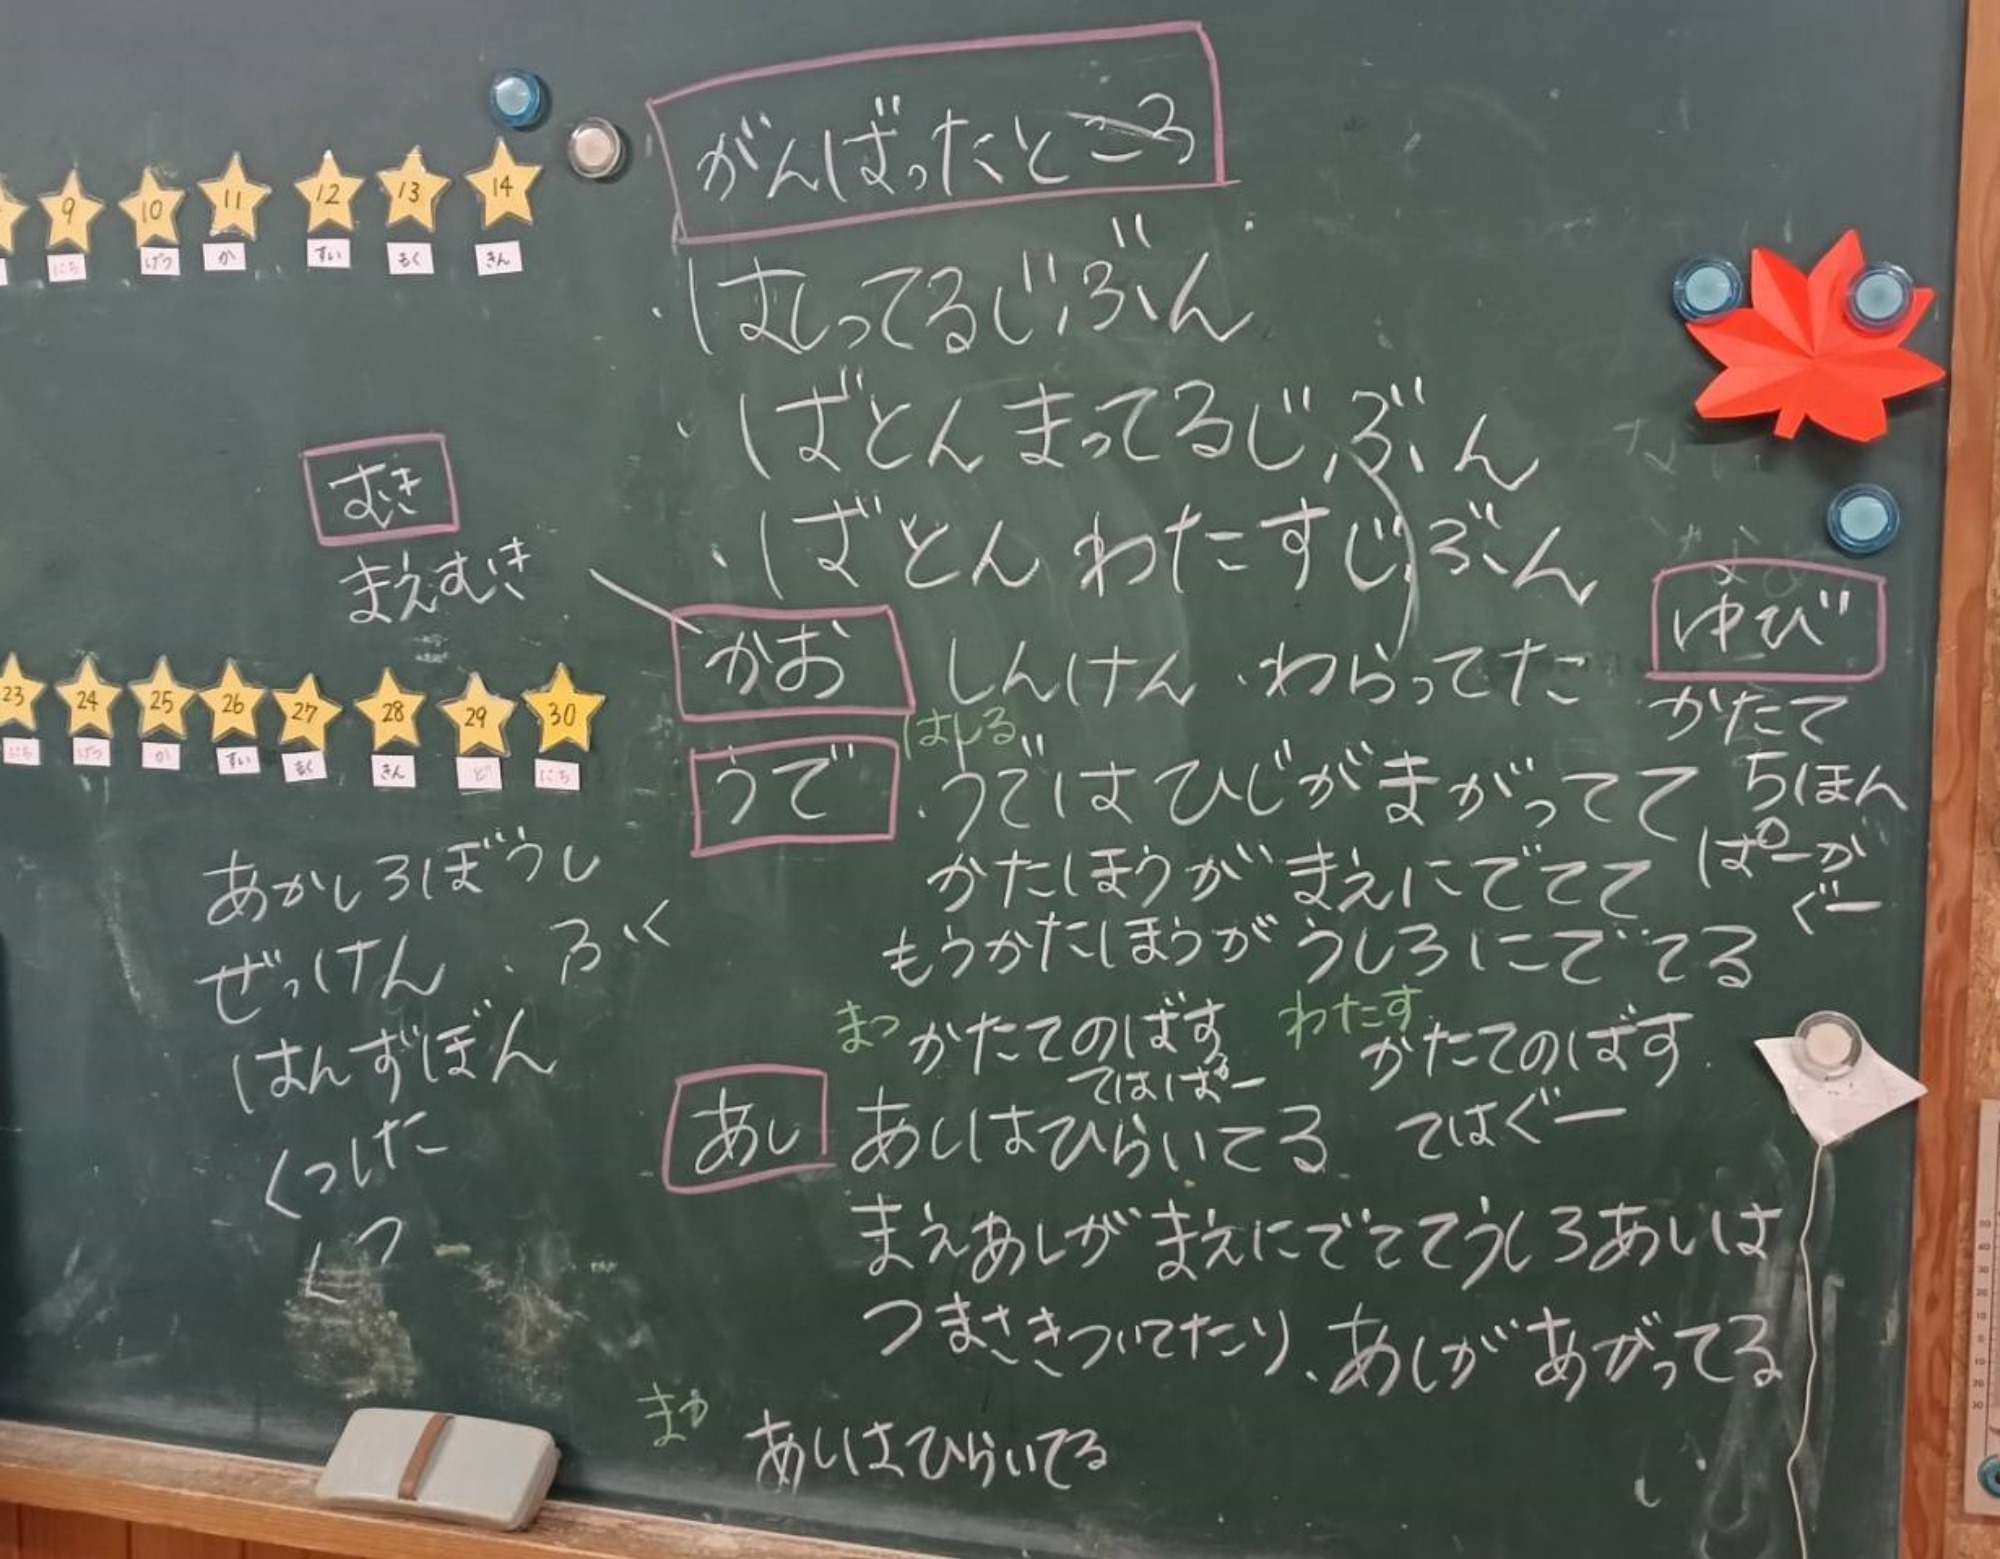 がんばったところ
・はしってるじぶん
・ばとんまってるじぶん
・ばとんわたすじぶん
かお しんけん・わらってた
はしる
うで ・うではひじがまがってて
かたほうがまえにでてて
もうかたほうがうしろにでてる
まつ かたてのばす わたす かたてのばす
てはぱー てはぐー
あし あしはひらいてる
まえあしがまえにでててうしろあしは
つまさきついてたり、あしがあがってる
あしはひらいてる
ゆび
かたて
5ほん
ぱーか
ぐー
9 10 11 12 13 14
にち げつ か すい もく きん
むき
まえむき
23 24 25 26 27 28 29 30
にち げつ か すい もく きん ど にち
あかしろぼうし
ぜっけん・ふく
はんずぼん
くつした
くつ